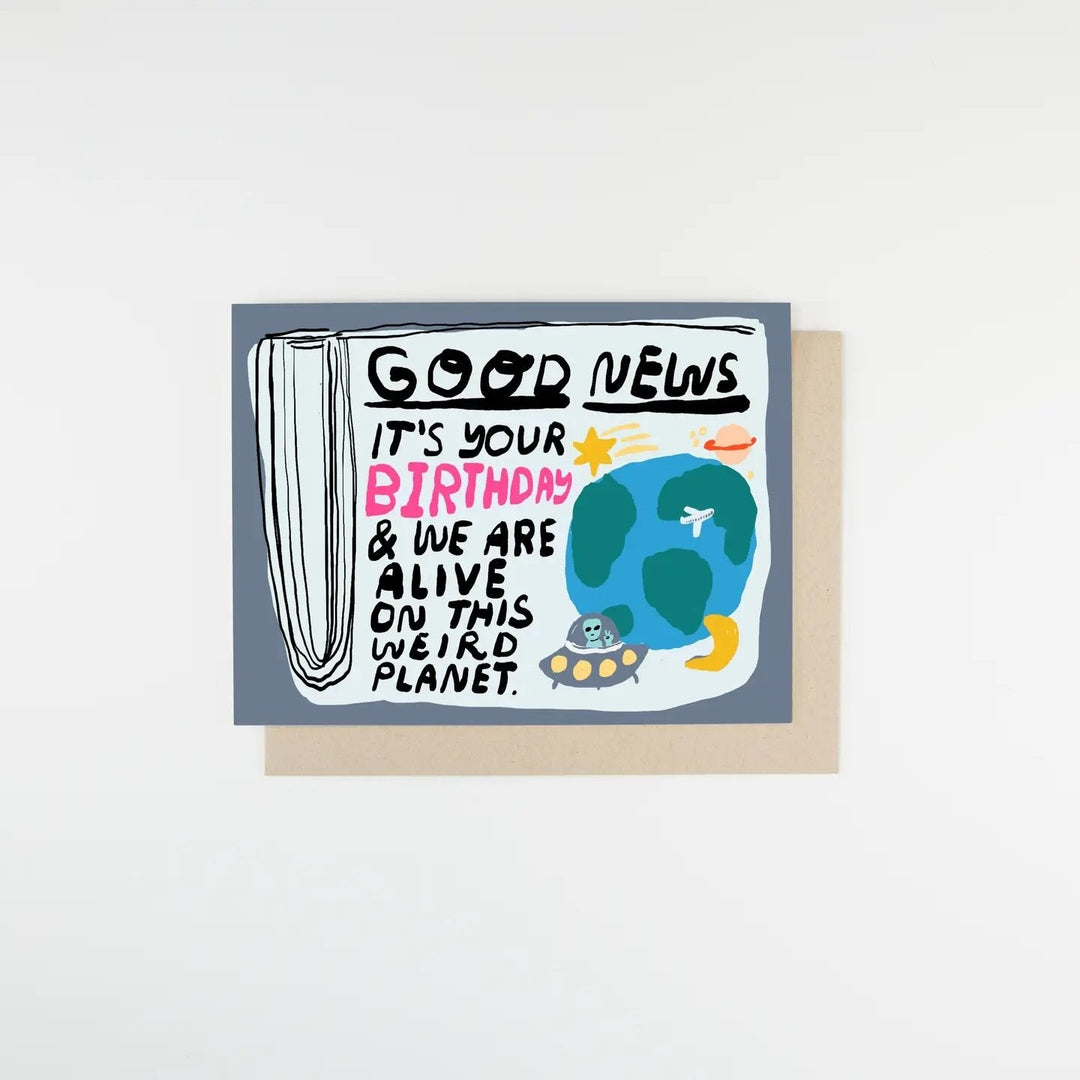 GOOD NEWS
IT'S YOUR
BIRTHDAY
& WE ARE
ALIVE
ON THIS
WEIRD
PLANET.